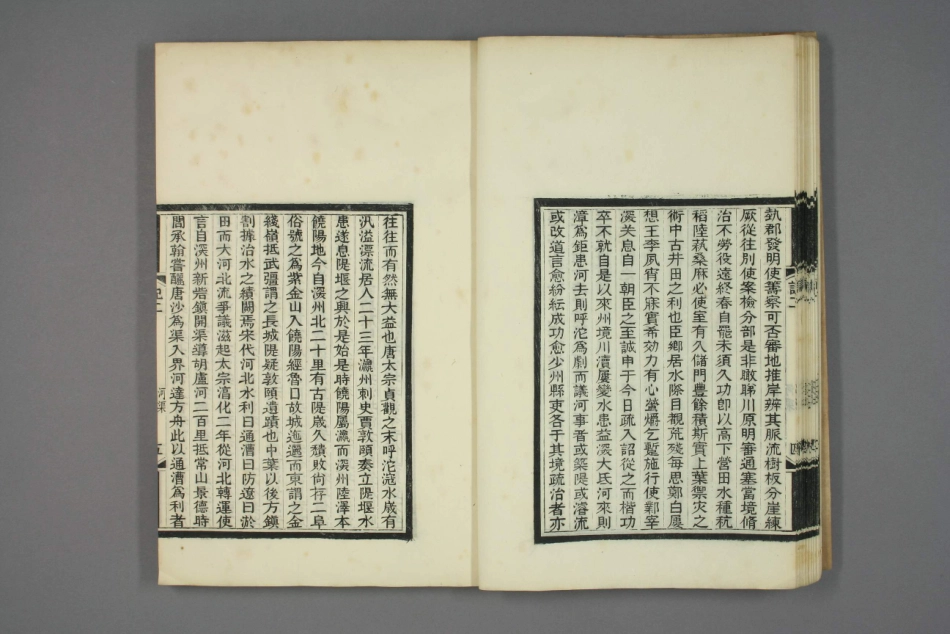 埶郡發明使籌察可否審地推岸辨其脈流樹板分崖練
厥從往別使案檢分部是非瞰睇川原明審通塞當境脩
治不勞役遠終春自罷未須久功卽以高下營田水種秔
稻陸萟桑麻必使室有久儲門豐餘積斯實上葉禦灾之
術中古井田之利也臣鄉居水際目觀荒殘每思鄭白屢
想王李夙宵不寐實希効力有心螢爝乞蹔施行使鄴宰
深关息自一朝臣之至誠申于今日疏入詔從之而楷功
卒不就自是以來州境川瀆屢變水患益深大氐河來則
漳爲鉅患河去則呼沱爲劇而議河事者或築隄或濬流
或改道言愈紛紜成功愈少州縣吏各于其境疏治者亦
往往而有然無大益也唐太宗貞觀之末呼沱寇水歲有
汎溢漂流居人二十三年瀛州刺史賈敦頤奏立隄堰水
患遂息隄堰之興於是始是時饒陽屬瀛而深州陸澤本
饒陽地今自深州北二十里有古隄歲久穨敗尙存二阜
俗號之爲紫金山入饒陽經魯口故城迤邐而東謂之金
綫嶺抵武彊謂之長城隄疑敦頤遺蹟也中葉以後方鎭
割據治水之績闕焉宋代河北水利曰通漕曰防遼曰淤
田而大河北流爭議滋起太宗淳化二年從河北轉運使
言自深州新砦鎭開渠導胡盧河二百里抵常山景德時
閻承翰嘗醞唐沙爲渠入界河達方舟此以通漕爲利者